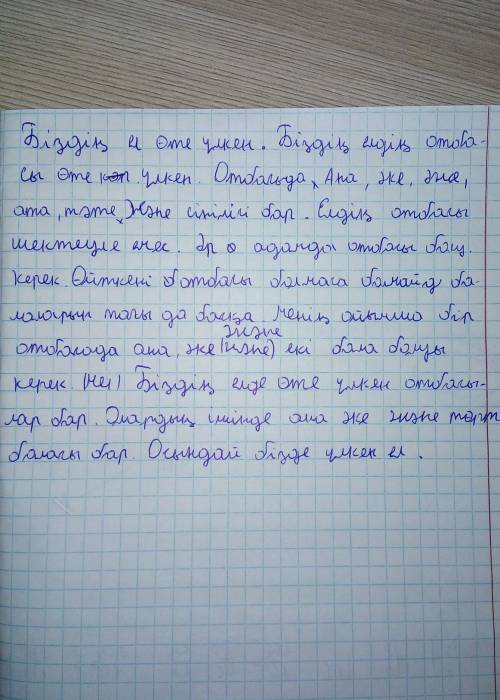 Біздің ел өте үлкен. Біздің елдің отба-
сы өте көп үлкен. Отбасыда, Ана, әке, әже,
ата, тәте, Және сіңлісі бар. Елдің отбасы
шектеуле емес. Әр адамда отбасы болу
керек. Өйткені отбасы болмаса болмайд ба-
тағы да басқа. Менің ойымша бір
және
отбасода ана, әке (және) екі бала болуы
керек. Біздің елде өте үлкен отбасы-
лар бар. Олардың ішінде ана әке және төрт
баласы бар. Осындай бізде үлкен ел.